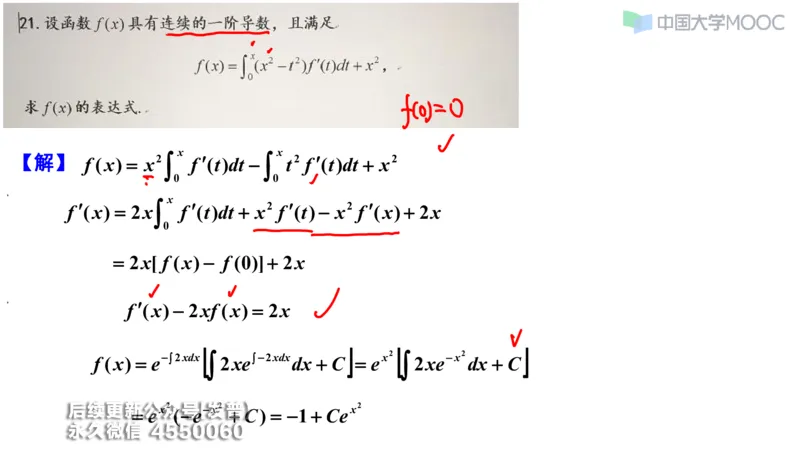 中国大学MOOC
21. 设函数 f(x) 具有连续的一阶导数，且满足
f(x) = ∫₀ˣ (x² − t²) f′(t)dt + x²，
f(0)=0
求 f(x) 的表达式.
【解】 f(x) = x² ∫₀ˣ f′(t)dt − ∫₀ˣ t² f′(t)dt + x²
f′(x) = 2x ∫₀ˣ f′(t)dt + x² f′(t) − x² f′(x) + 2x
= 2x[f(x) − f(0)] + 2x
f′(x) − 2xf(x) = 2x
f(x) = e^{−∫2xdx} [∫ 2xe^{∫−2xdx} dx + C] = e^{x²} [∫ 2xe^{−x²} dx + C]
= e^{x²} (−e^{−x²} + C) = −1 + Ce^{x²}
永久微信 4550060